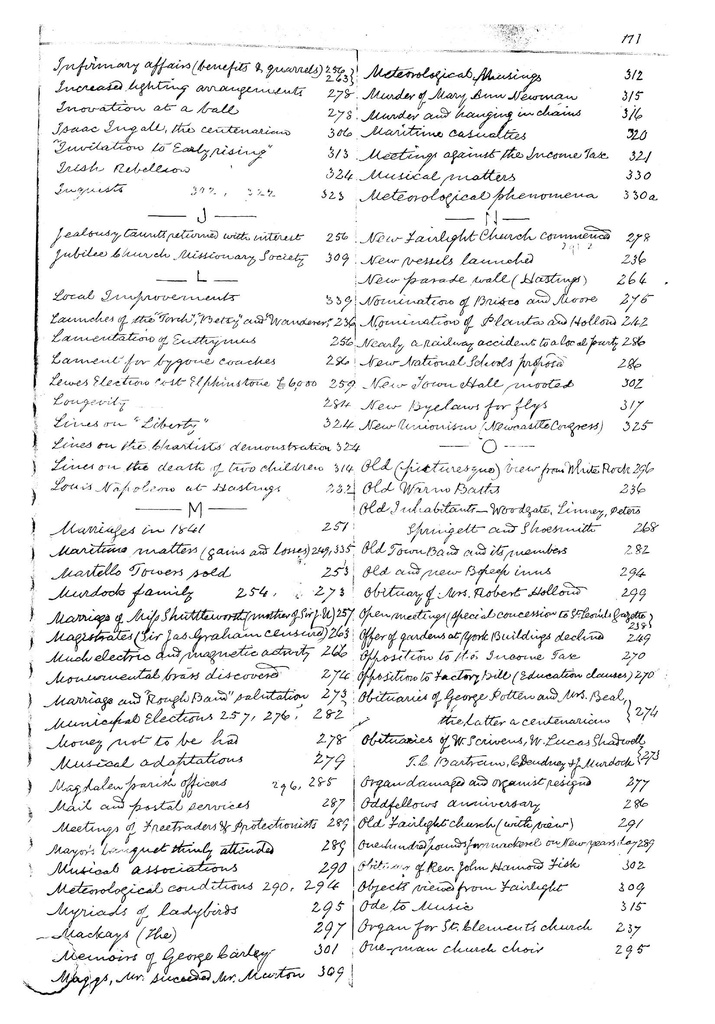 171
Infirmary affairs (benefits & quarrels) 256, 263}
Increased lighting arrangements 278
Inovation at a ball 273
Isaac Ingall, the centenarian 306
"Invitation to Early rising" 313
Irish Rebellion 324
Inquests 323
— J —
Jealousy taunts returned with interest 256
Jubilee Church Missionary Society 309
— L —
Local Improvements 339
Launches of the "Torch", "Betsy" and "Wanderer" 236
Lamentation of Euthymus 256
Lament for bygone coaches 286
Lewes Election cost Elphinstone £6,000 259
Longevity 284
Lines on "Liberty" 324
Lines on the Chartists' demonstration 324
Lines on the death of two children 314
Louis Napoleon at Hastings 232
— M —
Marriages in 1841 251
Maritime matters (gains and losses) 249, 335
Martello Towers sold 253
Murdock family 254, 273
Marriage of Miss Shuttleworth (mother of Sir J. K) 257
Magistrates (Sir Jas. Graham censured) 263
Much electric and magnetic activity 266
Monumental brass discovered 274
Marriage and "Rough Band" salutation 273
Municipal Elections 257, 276, 282
Money not to be had 278
Musical adaptations 279
Magdalen parish officers 296, 285
Mail and postal services 287
Meetings of Freetraders & Protectionists 289
Mayor's banquet thinly attended 289
Musical associations 290
Meteorological conditions 290, 294
Myriads of ladybirds 295
Mackays (the) 297
Memoirs of George Carley 301
Maggs, Mr. succeeded Mr. Murton 309
Meteorological Musings 312
Murder of Mary Ann Newman 315
Murder and hanging in chains 316
Maritime casualties 320
Meetings against the Income Tax 321
Musical matters 330
Meteorological phenomena 330a
— N —
New Fairlight Church commenced 278
New vessels launched 236
New parade wall (Hastings) 264
Nomination of Brisco and Moore 275
Nomination of Planta and Hollond 242
Nearly a railway accident to a local party 286
New National Schools proposed 286
New Town Hall mooted 302
New Byelaws for flys 317
New Unionism (Newcastle Congress) 325
— O —
Old (picturesque) view from White Rock 296
Old Warm Baths 236
Old Inhabitants — Woodgate, Linney, Peters
Springett and Shoesmith 268
Old Town Band and its members 282
Old and new Bopeep inns 294
Obituary of Mrs. Robert Hollond 299
Open meetings (special concession to St. Leonards Gazette) 238
Offer of gardens at York Buildings declined 249
Opposition to the Income Tax 270
Opposition to Factory Bill (Education clauses) 270
Obituaries of George Potten and Mrs. Beal,
the latter a centenarian } 274
Obituaries of W. Scrivens, W. Lucas Shadwell
T. C. Bartram, C. Deudney & J. Murdock } 273
Organ damaged and organist resigned 277
Oddfellows anniversary 286
Old Fairlight church (with view) 291
One hundred pounds for mackerel on New years day 289
Obituary of Rev. John Hamond Fisk 302
Objects viewed from Fairlight 309
Ode to Music 315
Organ for St. Clement's church 237
One-man church choir 295